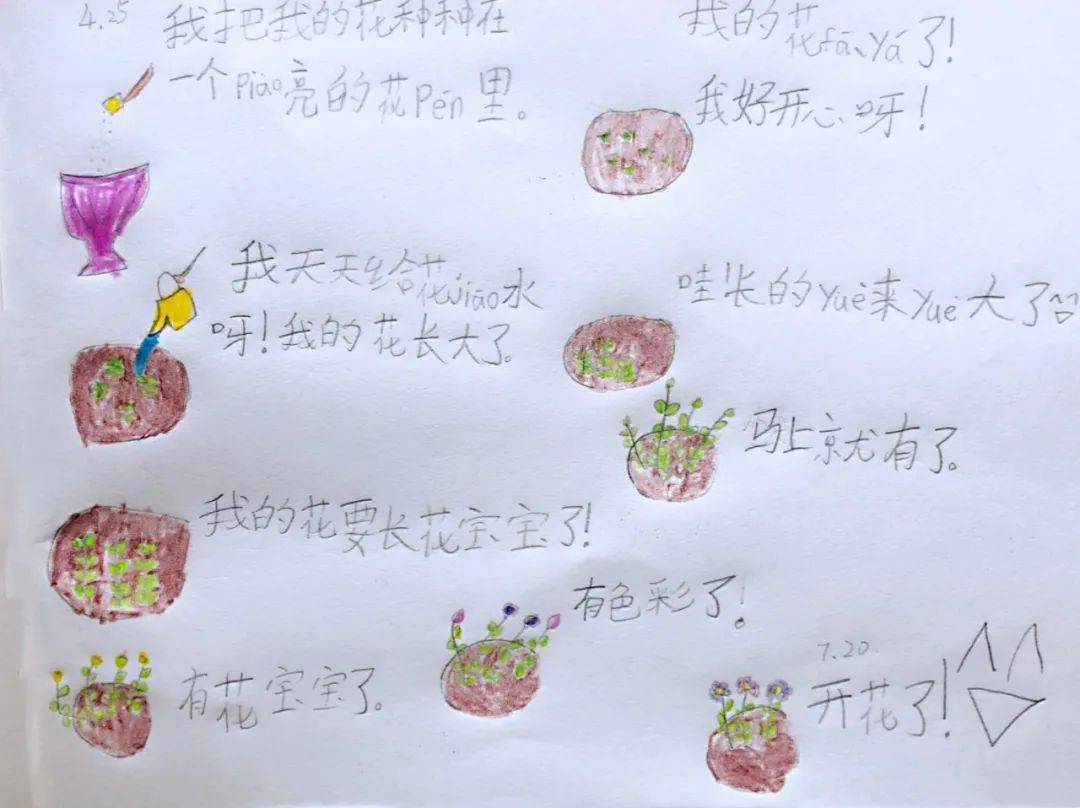 4.25
我把我的花种种在
一个piào亮的花Pén里。
我的花fāyá了！
我好开心呀！
我天天给花jiāo水
呀！我的花长大了。
哇长的yuè来yuè大了
我的花要长花宝宝了！
马上就有了。
有花宝宝了。
有色彩了！
7.20
开花了！